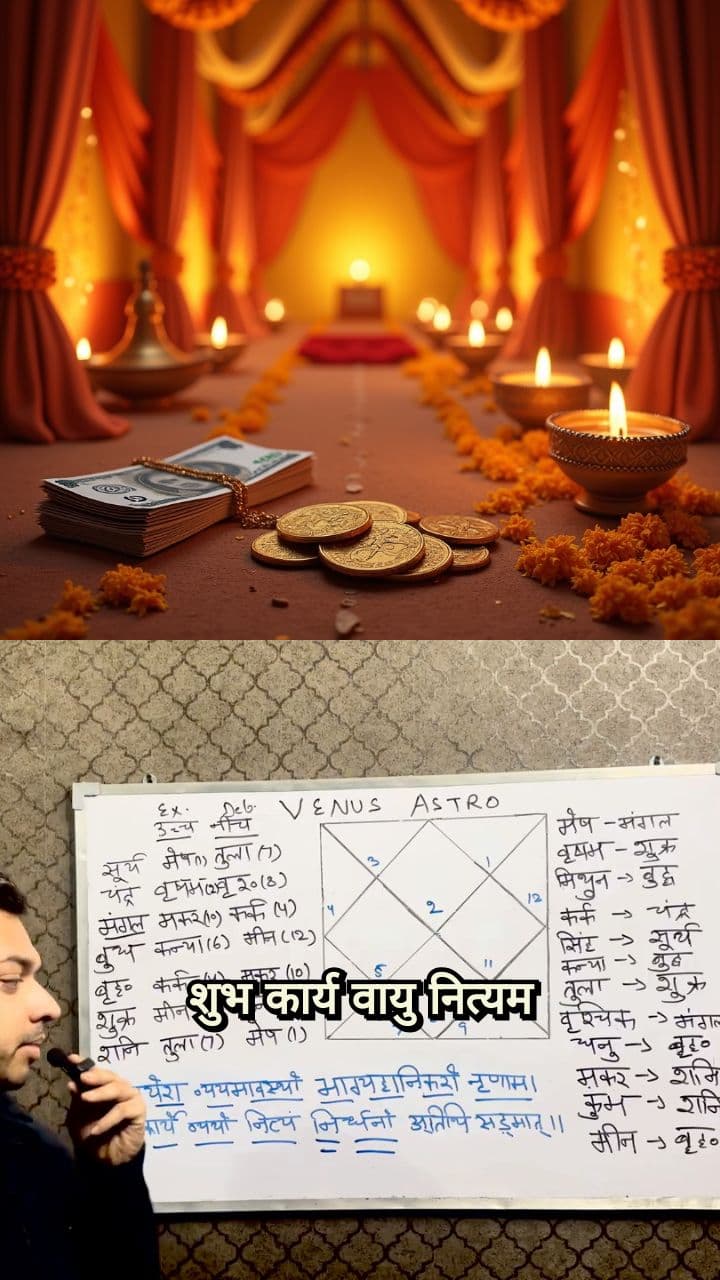 VENUS ASTRO
Ex. Deb.
उच्च नीच
सूर्य मेष(1) तुला(7)
चंद्र वृषभ(2)
मंगल मकर(10) कर्क(4)
बुध कन्या(6) मीन(12)
बृह० कर्क मकर(10)
शुक्र मीन
शनि तुला(7) मेष(1)
3 1
4 2 12
5 11
9
मेष – मंगल
वृषभ – शुक्र
मिथुन → बुध
कर्क → चंद्र
सिंह → सूर्य
कन्या → बुध
तुला → शुक्र
वृश्चिक → मंगल
धनु → बृह०
मकर → शनि
कुंभ → शनि
मीन → बृह०
शुभ कार्य वायु नित्यम
व्ययभावस्थो भाग्यहानिकरो नृणाम।
कार्ये व्ययो नित्यं निर्धनो अतिथि सङ्मात्॥